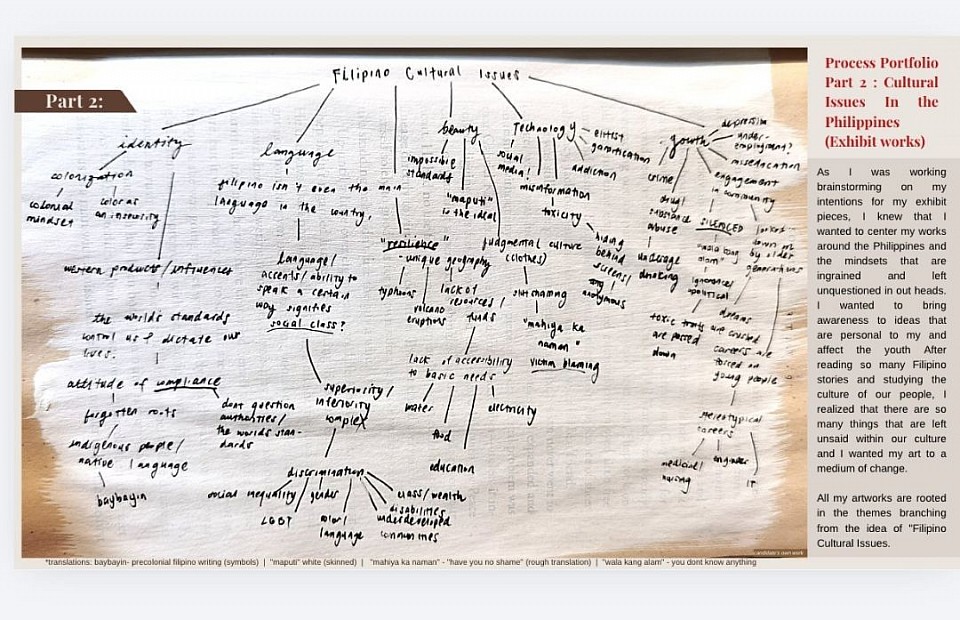 Part 2:
Filipino Cultural Issues
identity
colorization
colonial
mindset
color as
an insecurity
western products/influences
the worlds standards
control us & dictate our
lives.
attitude of compliance
forgotten roots
indigenous people/
native language
baybayin
dont question
authorities/
the worlds stan-
dards
language
filipino isn't even the main
language in the country.
language/
accents/ability to
speak a certain
way signifies
social class?
superiority/
inferiority
complex
discrimination
social inequality
gender
LGBT
color/
language
class/wealth
disabilities
underdeveloped
communities
"resilience"
- unique geography
typhoons
volcano
eruptions
lack of
resources/
funds
lack of accessibility
to basic needs
water
food
education
electricity
beauty
impossible
standards
"maputi"
is the ideal
judgmental culture
(clothes)
slut shaming
"mahiya ka
naman"
victim blaming
Technology
social
media!
misinformation
toxicity
elitist
gamification
addiction
hiding
behind
screens/
anonymous
youth
crime
drug/
substance
abuse
underage
drinking
SILENCED
"wala kang
alam"
ignorance/
apolitical
toxic traits
are passed
down
depression
under-
employment?
miseducation
engagement
in community
looked
down on
by older
generations
dreams
are crushed
careers are
forced on
young people
stereotypical
careers
medicine/
nursing
engineer
IT
candidate's own work
*translations: baybayin- precolonial filipino writing (symbols) | "maputi" white (skinned) | "mahiya ka naman" - "have you no shame" (rough translation) | "wala kang alam" - you dont know anything
Process Portfolio
Part 2 : Cultural
Issues In the
Philippines
(Exhibit works)
As I was working
brainstorming on my
intentions for my exhibit
pieces, I knew that I
wanted to center my works
around the Philippines and
the mindsets that are
ingrained and left
unquestioned in out heads.
I wanted to bring
awareness to ideas that
are personal to my and
affect the youth After
reading so many Filipino
stories and studying the
culture of our people, I
realized that there are so
many things that are left
unsaid within our culture
and I wanted my art to a
medium of change.
All my artworks are rooted
in the themes branching
from the idea of "Filipino
Cultural Issues.